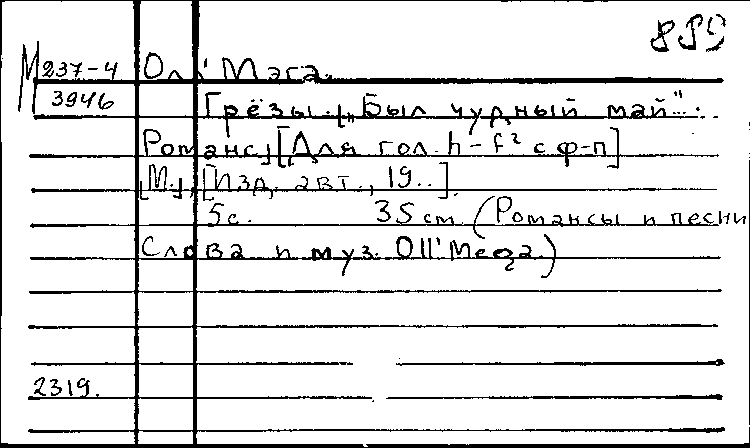 889
М 237-4
3946
Олл'Мэга.
Грёзы. („Был чудный май".
Романс) [Для гол. h-f² с ф-п]
[М.], [Изд. авт., 19..].
5с. 35 см (Романсы и песни
Слова и муз. Олл'Мега.)
2319.